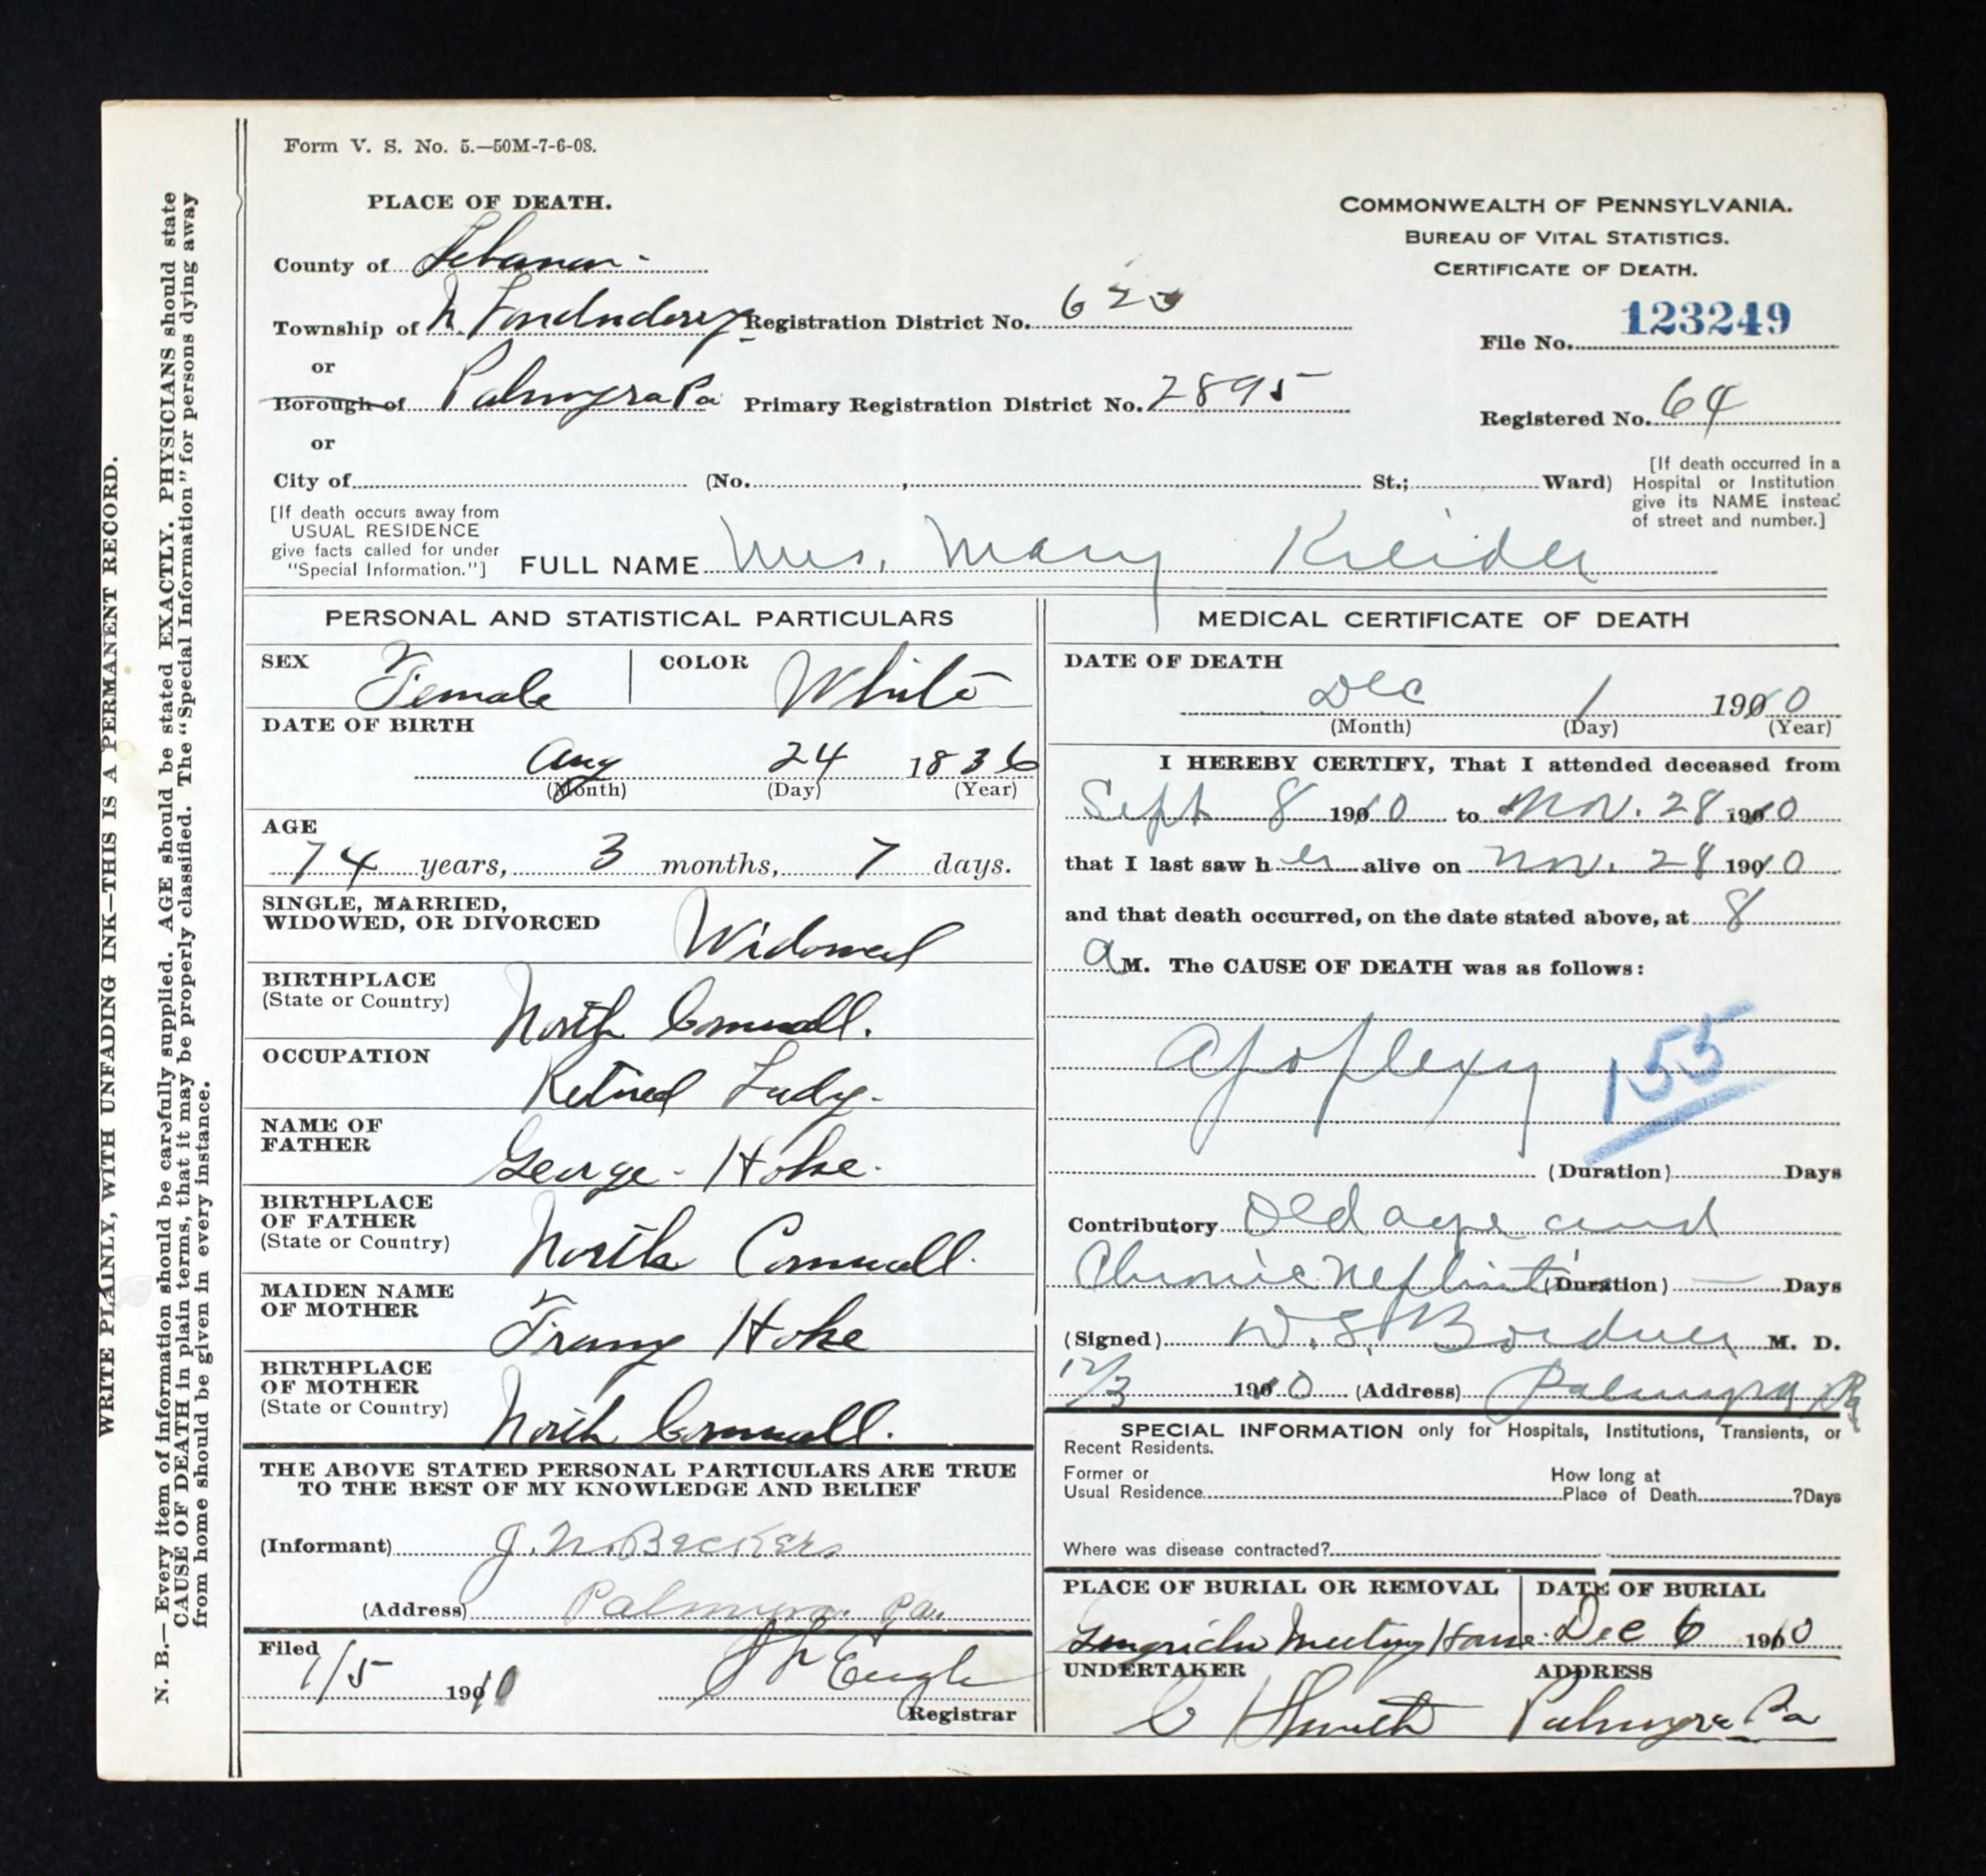 Form V. S. No. 5.—50M-7-6-08.
PLACE OF DEATH.
County of Lebanon
Township of N. Londonderry Registration District No.
or
Borough of Palmyra Pa Primary Registration District No. 2895
or
City of (No. , St.; Ward)
[If death occurs away from
USUAL RESIDENCE
give facts called for under
"Special Information."]
COMMONWEALTH OF PENNSYLVANIA.
BUREAU OF VITAL STATISTICS.
CERTIFICATE OF DEATH.
File No. 123249
Registered No. 64
[If death occurred in a
Hospital or Institution
give its NAME instead
of street and number.]
FULL NAME Mrs. Mary Kreider
PERSONAL AND STATISTICAL PARTICULARS
SEX Female COLOR White
DATE OF BIRTH
Aug 24 1836
(Month) (Day) (Year)
AGE
74 years, 3 months, 7 days.
SINGLE, MARRIED,
WIDOWED, OR DIVORCED Widowed
BIRTHPLACE
(State or Country) North Cornwall.
OCCUPATION Retired Lady.
NAME OF
FATHER George Hoke
BIRTHPLACE
OF FATHER
(State or Country) North Cornwall.
MAIDEN NAME
OF MOTHER Frany Hoke
BIRTHPLACE
OF MOTHER
(State or Country) North Cornwall.
THE ABOVE STATED PERSONAL PARTICULARS ARE TRUE
TO THE BEST OF MY KNOWLEDGE AND BELIEF
(Informant) J. N. Beckers
(Address) Palmyra Pa.
Filed
1/5 190
Registrar
MEDICAL CERTIFICATE OF DEATH
DATE OF DEATH
Dec 1 1910
(Month) (Day) (Year)
I HEREBY CERTIFY, That I attended deceased from
Sept 8 1910 to Nov. 28 1910
that I last saw her alive on Nov. 28 1910
and that death occurred, on the date stated above, at 8
a M. The CAUSE OF DEATH was as follows:
Apoplexy 155
(Duration) Days
Contributory Old age and
Chronic Nephritis (Duration) — Days
(Signed) W. S. Bordner M. D.
12/3 1910 (Address) Palmyra Pa
SPECIAL INFORMATION only for Hospitals, Institutions, Transients, or
Recent Residents.
Former or
Usual Residence
How long at
Place of Death ? Days
Where was disease contracted?
PLACE OF BURIAL OR REMOVAL DATE OF BURIAL
Gingrichs Meeting House Dec 6 1910
UNDERTAKER ADDRESS
Palmyra Pa
WRITE PLAINLY, WITH UNFADING INK—THIS IS A PERMANENT RECORD.
N. B.—Every item of information should be carefully supplied. AGE should be stated EXACTLY. PHYSICIANS should state
CAUSE OF DEATH in plain terms, that it may be properly classified. The "Special Information" for persons dying away
from home should be given in every instance.